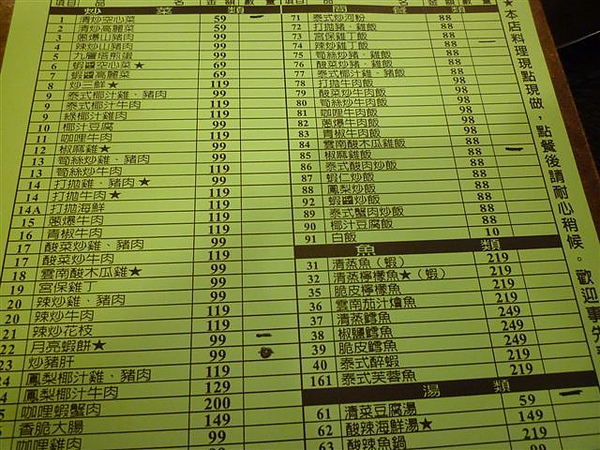 炒 菜 類
1 清炒空心菜 59 一
2 清炒高麗菜 59
3 蔥爆山豬肉 99
4 辣炒山豬肉 99
5 九層塔煎蛋 69
6 蝦醬空心菜★ 69
7 蝦醬高麗菜 69
8 炒三鮮★ 119
9 泰式椰汁雞、豬肉 99
9 泰式椰汁牛肉 119
9 綠椰汁雞肉 99
10 椰汁豆腐 99
11 咖哩牛肉 119
12 椒麻雞★ 99
13 筍絲炒雞、豬肉 99
13 筍絲炒牛肉 119
14 打拋雞、豬肉★ 99
14 打拋牛肉★ 119
14A 打拋海鮮 119
15 蔥爆牛肉 119
16 青椒牛肉 119
17 酸菜炒雞、豬肉 99
17 酸菜炒牛肉 119
18 雲南酸木瓜雞★ 99
19 宮保雞丁 99
20 辣炒雞、豬肉 99
20 辣炒牛肉 119
21 辣炒花枝 119
22 月亮蝦餅★ 99 一
23 炒豬肝 99
24 鳳梨椰汁雞、豬肉 119
24 鳳梨椰汁牛肉 129
咖哩蝦蟹肉 200
香脆大腸 149
咖哩雞肉 99
71 泰式炒河粉 88
72 打拋豬、雞飯 88
73 宮保雞丁飯 88
74 辣炒雞丁飯 88 一
75 筍絲炒豬飯 88
76 酸菜炒豬、雞飯 88
77 泰式椰汁雞飯 88
78 打拋牛肉飯 98
79 酸菜炒牛肉飯 98
80 筍絲炒牛肉飯 98
81 咖哩牛肉飯 98
82 蔥爆牛肉飯 98
83 青椒牛肉飯 98
84 雲南酸木瓜雞飯 88
85 椒麻雞飯 88 一
86 泰式酸肉炒飯 88
87 蝦仁炒飯 88
88 鳳梨炒飯 88
92 蝦醬炒飯 88
89 泰式蟹肉炒飯 88
90 椰汁豆腐飯 88
91 白飯 10
魚 類
31 清蒸魚（蝦） 219
32 清蒸檸檬魚★（蝦） 219
35 脆皮檸檬魚 219
36 雲南茄汁燴魚 219
37 清蒸鱈魚 249
38 椒鹽鱈魚 249
39 脆皮鱈魚 249
40 泰式醉蝦 219
161 泰式芙蓉魚 219
湯 類
61 清菜豆腐湯 59 一
62 酸辣海鮮湯★ 149
63 酸辣魚鍋 99
★本店料理現點現做，點餐後請耐心稍候。歡迎事先